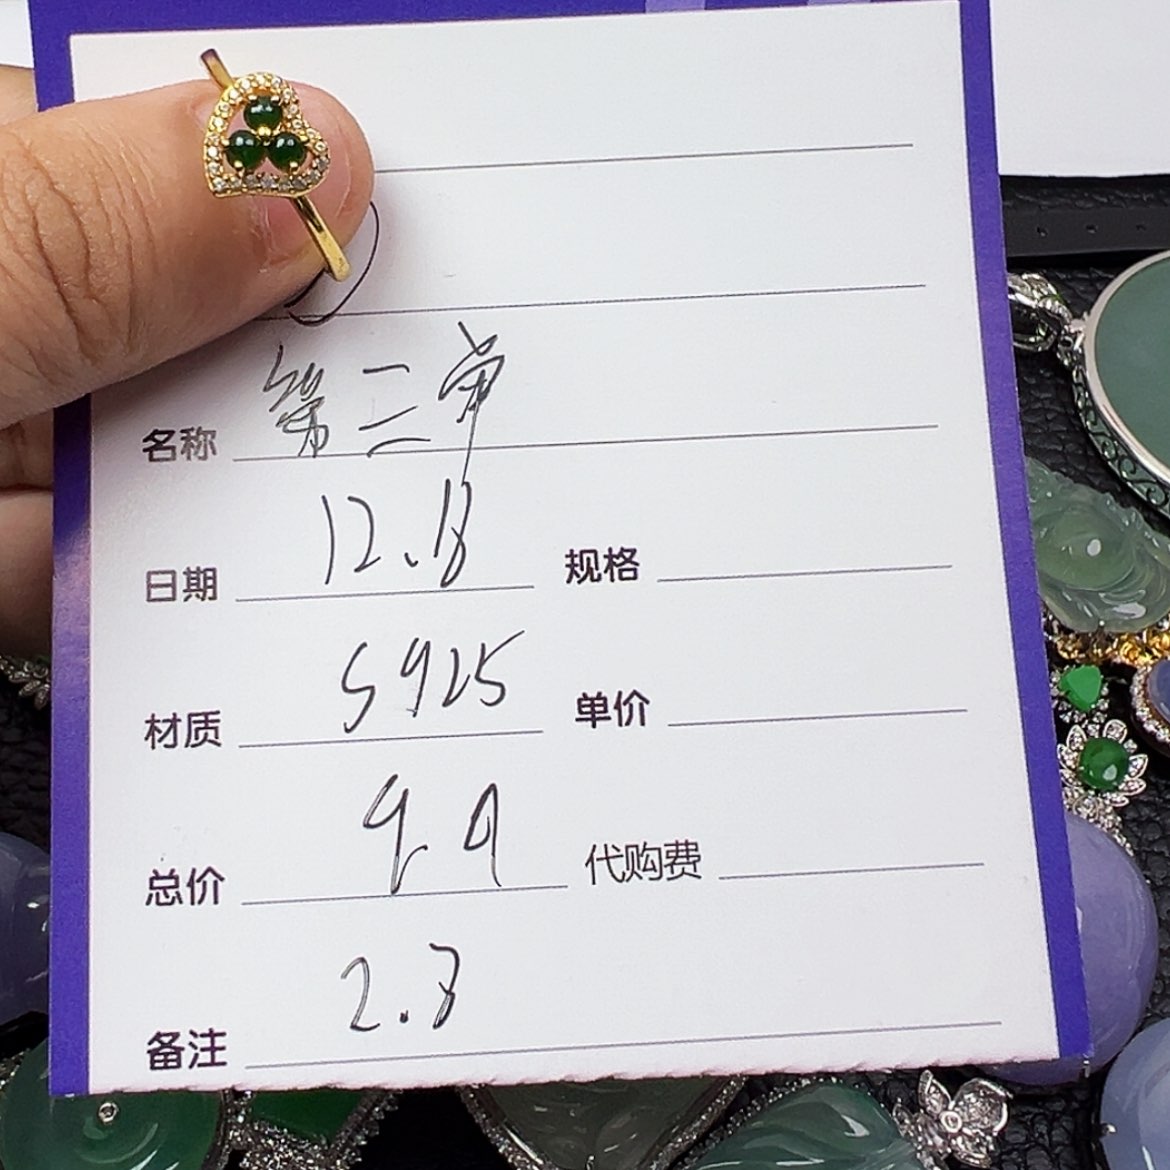 名称 第二单
日期 12.8 规格
材质 S925 单价
总价 9.9 代购费
备注 2.8